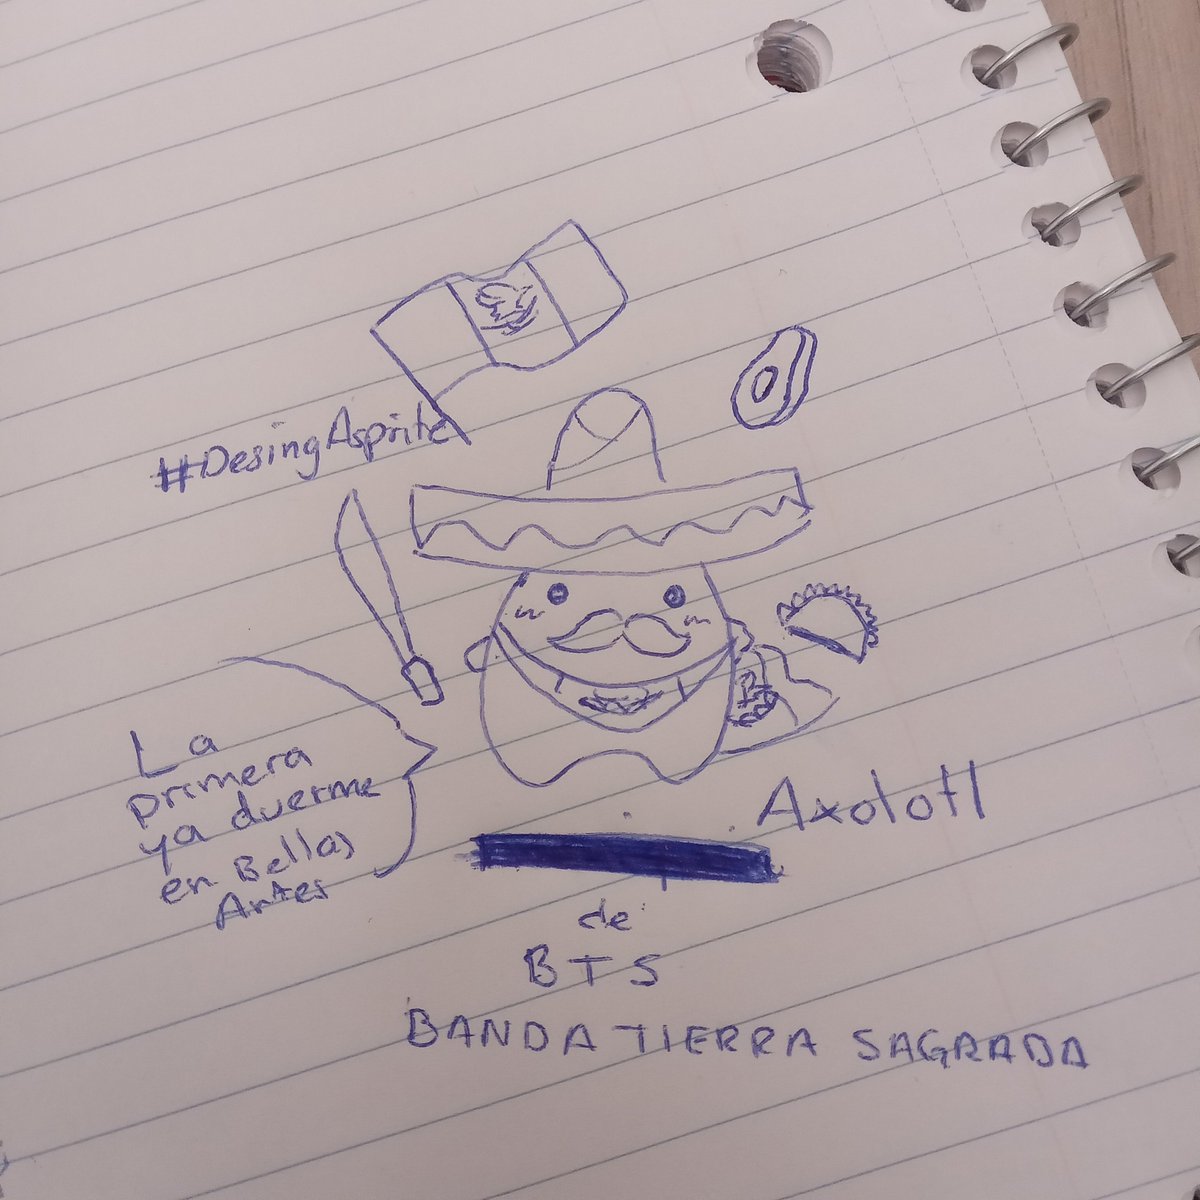 #DesingAsprite
La
primera
ya duerme
en Bellas
Artes
Axolotl
de
BTS
BANDA TIERRA SAGRADA